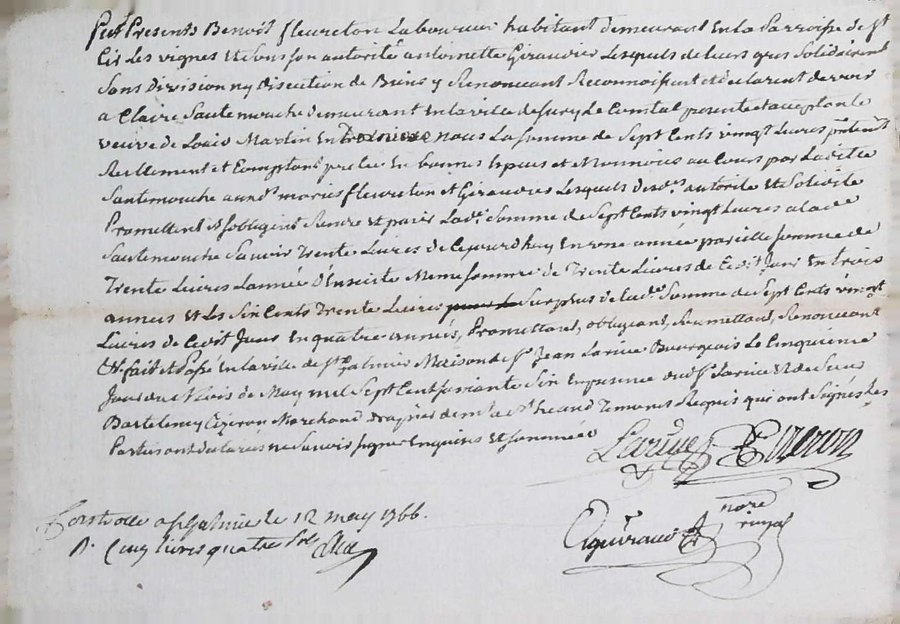 furent Presents Benoist fleureton Laboureur habitant demeurant En la Parroisse de St
Cir Les vignes Et Sous son autorité antoinette Giraudier Lesquels de leurs gres Solidairement
Sans Division ny Discution de Biens y Renoncant Reconnoissent et declarent devoir
a Claire Sautemouche demeurant En la ville de Sury Le Comtal presente et acceptante
veuve de Louis Martin En nous La somme de Sept Cents vingt Livres
Reellement et Comptant En bonnes Especes et Monnoies au Cours par Ladite
Sautemouche auxds maries fleureton et Giraudier Lesquels autorité Et Solidité
Promettent Et s'obligent Rendre Et paier Lade Somme de Sept Cents vingt Livres a lade
Sautemouche Savoir Trente Livres de Cejourdhuy En une année pareille somme de
Trente Livres L'année d'Ensuite Meme somme de Trente Livres de Cedit Jour En trois
années Et Les Six Cents Trente Livres Surplus de lade Somme de Sept Cents vingt
Livres de Cedit Jour En quatre années, Promettant, obligeant, Soumettant, Renonceant
Et fait et Passé En la ville de St galmier Maison de Sr Jean Larive Bourgeois Le Cinquieme
Jour du Mois de May mil Sept Cent soixante Six En presence dudit Sr Larive Et de Sieur
Bartelemy Ezeron Marchand drapier St heand Temoins Requis qui ont Signés Les
Parties ont declarés ne Savoir signer Enquis Et sommée
Larive Ezeron
notre
royal
Controlle a St galmier le 12 may 1766.
R. Cinq livres quatre